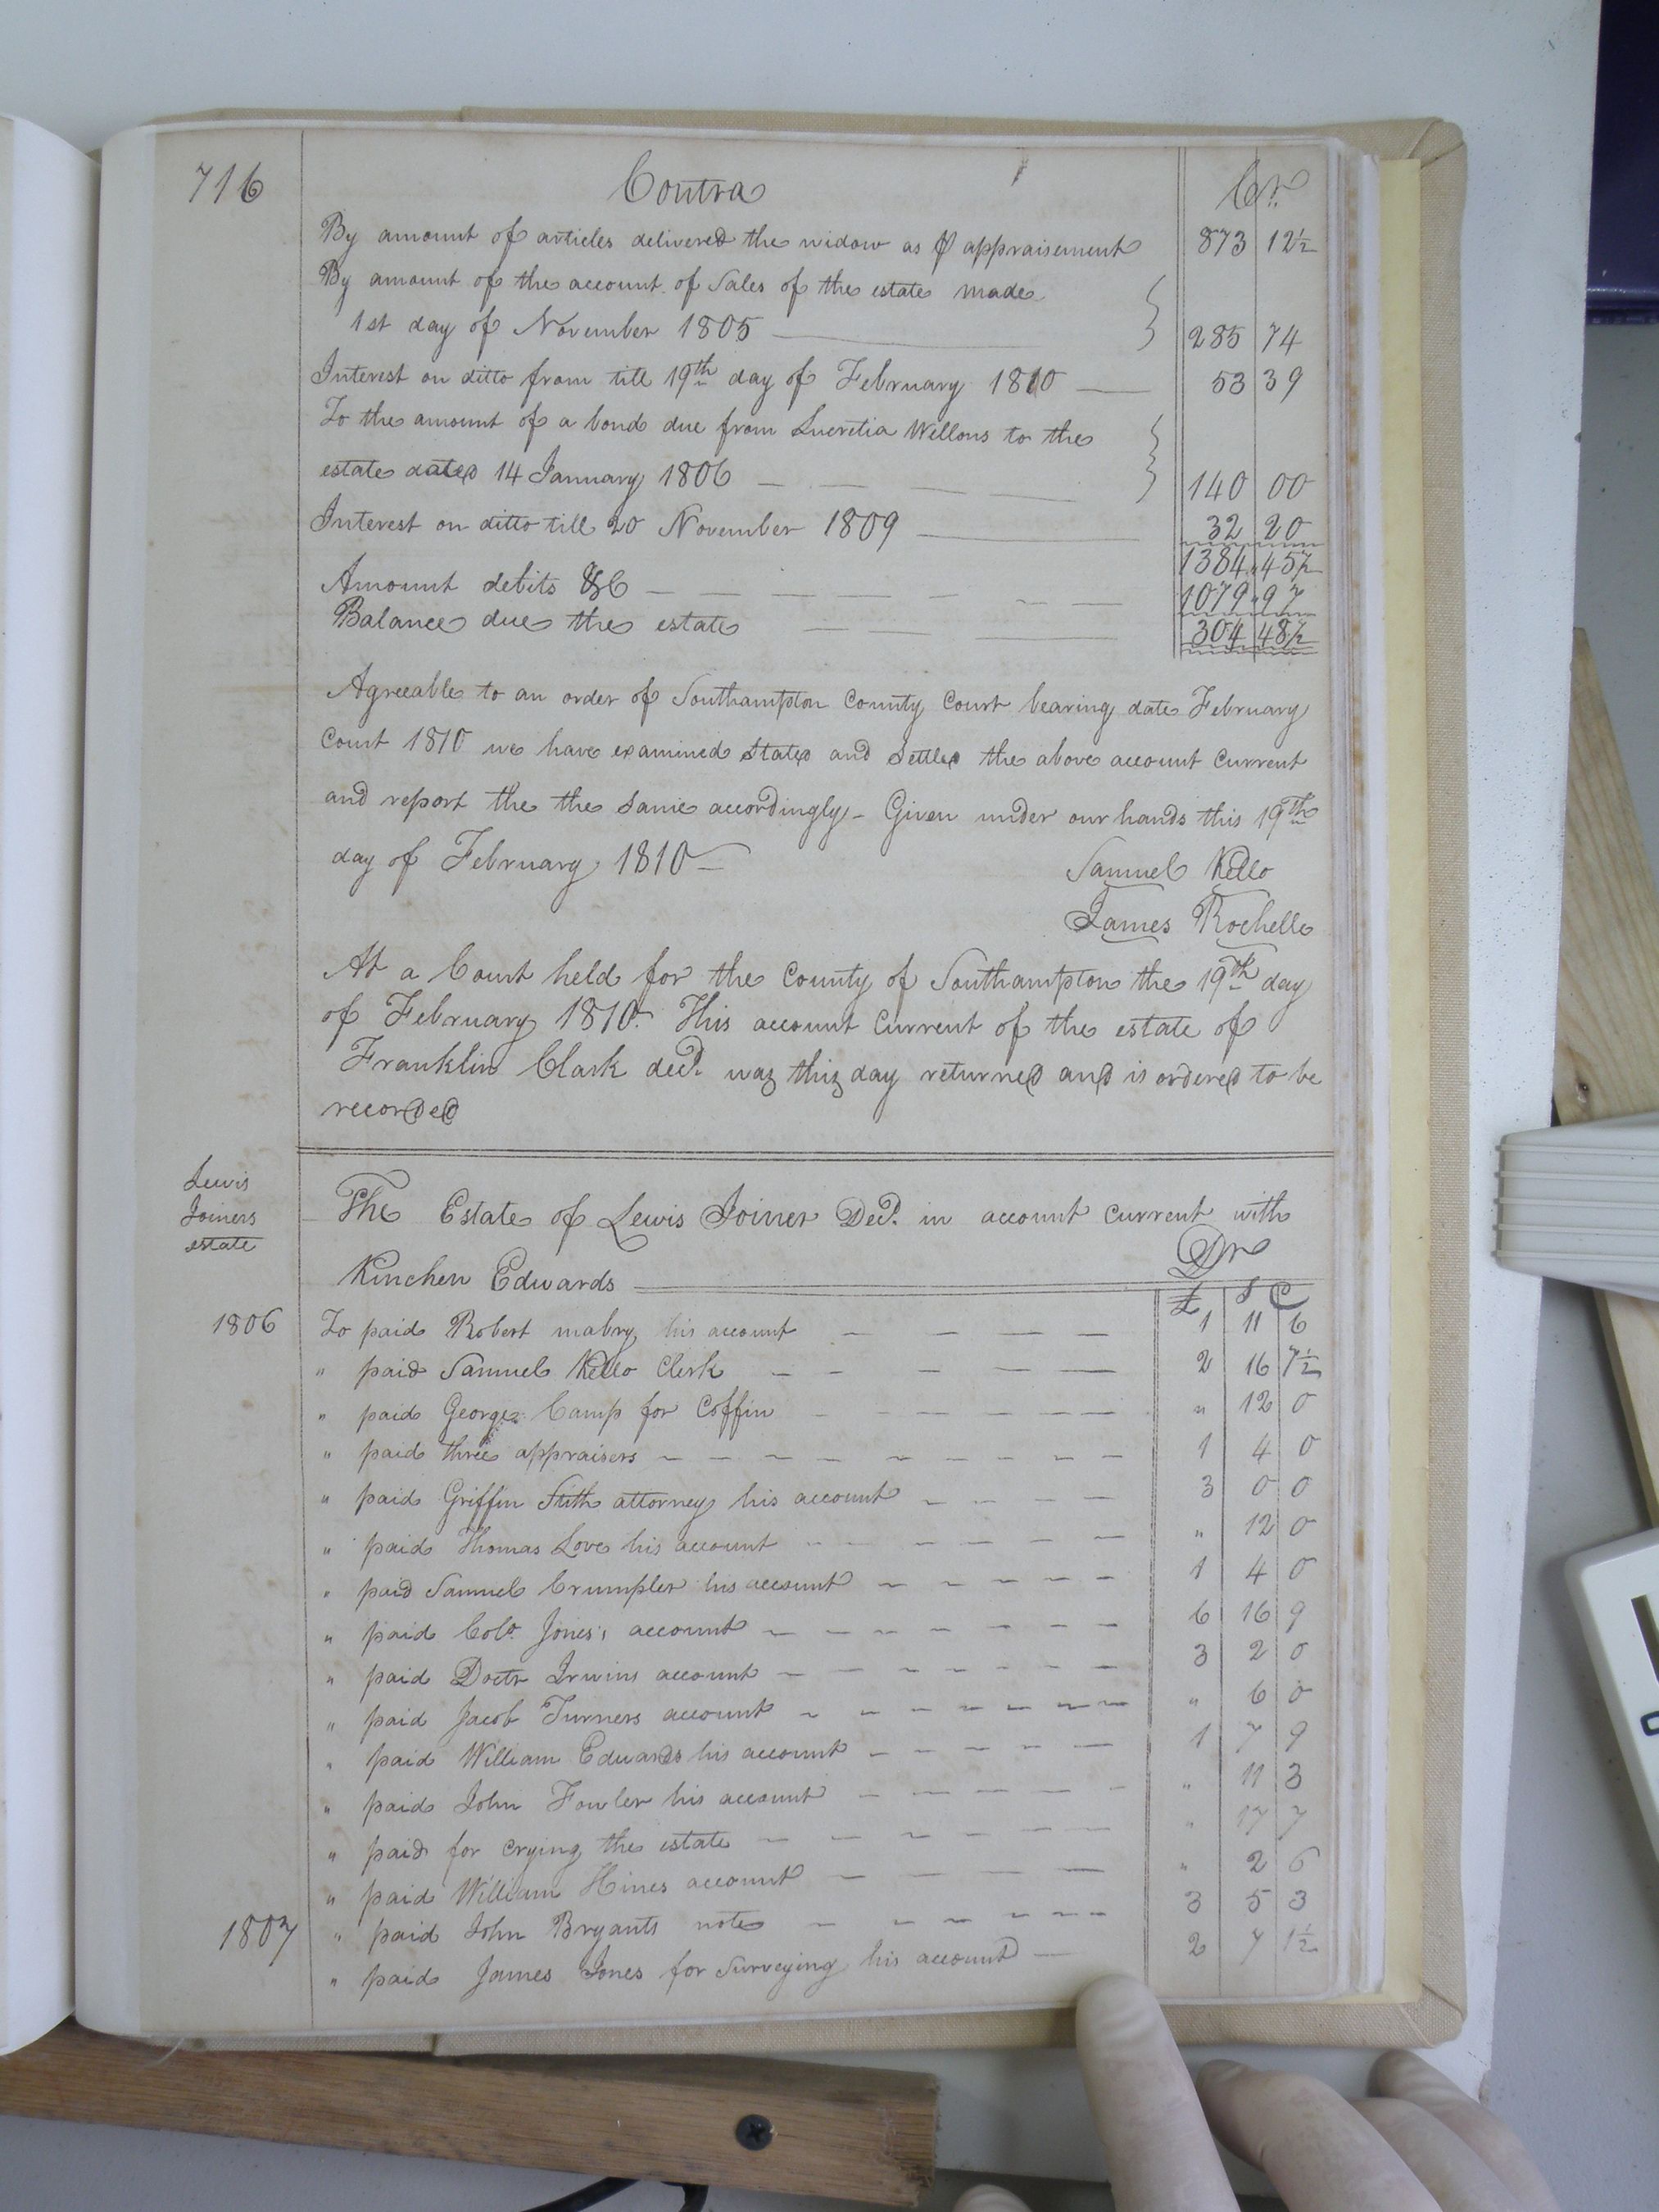 716
Contra Cr.
By amount of articles delivered the widow as ⅌ appraisement 873 12½
By amount of the account of Sales of the estate made
1st day of November 1805 285 74
Interest on ditto from till 19th day of February 1810 53 39
To the amount of a bond due from Lucretia Wellons to the
estate dated 14 January 1806 140 00
Interest on ditto till 20 November 1809 32 20
1384 " 45½
Amount debits &C 1079 " 97
Balance due the estate 304 48½
Agreeable to an order of Southampton County Court bearing date February
Court 1810 we have examined Stated and Settled the above account Current
and report the the same accordingly - Given under our hands this 19th
day of February 1810 -
Samuel Kello
James Rochelle
At a Court held for the County of Southampton the 19th day
of February 1810. This account Current of the estate of
Franklin Clark decd. was this day returned and is ordered to be
recorded
Lewis
Joiners
estate
The Estate of Lewis Joiner Decd. in account Current with
Kinchen Edwards Dr
£ S
1806 To paid Robert mabry his account 1 11 6
" paid Samuel Kello Clerk 2 16 7½
" paid George Camp for Coffin " 12 0
" paid three appraisers 1 4 0
" paid Griffin Stith attorney his account 3 0 0
" paid Thomas Love his account " 12 0
" paid Samuel Crumpler his account 1 4 0
" paid Colo. Jones's account 6 16 9
" paid Doctr Irwins account 3 2 0
" paid Jacob Turners account " 6 0
" paid William Edwards his account 1 7 9
" paid John Fowler his account " 11 3
" paid for crying the estate " 17 7
" paid William Hines account " 2 6
1807 " paid John Bryants note 3 5 3
" paid James Jones for Surveying his account 2 7 1½